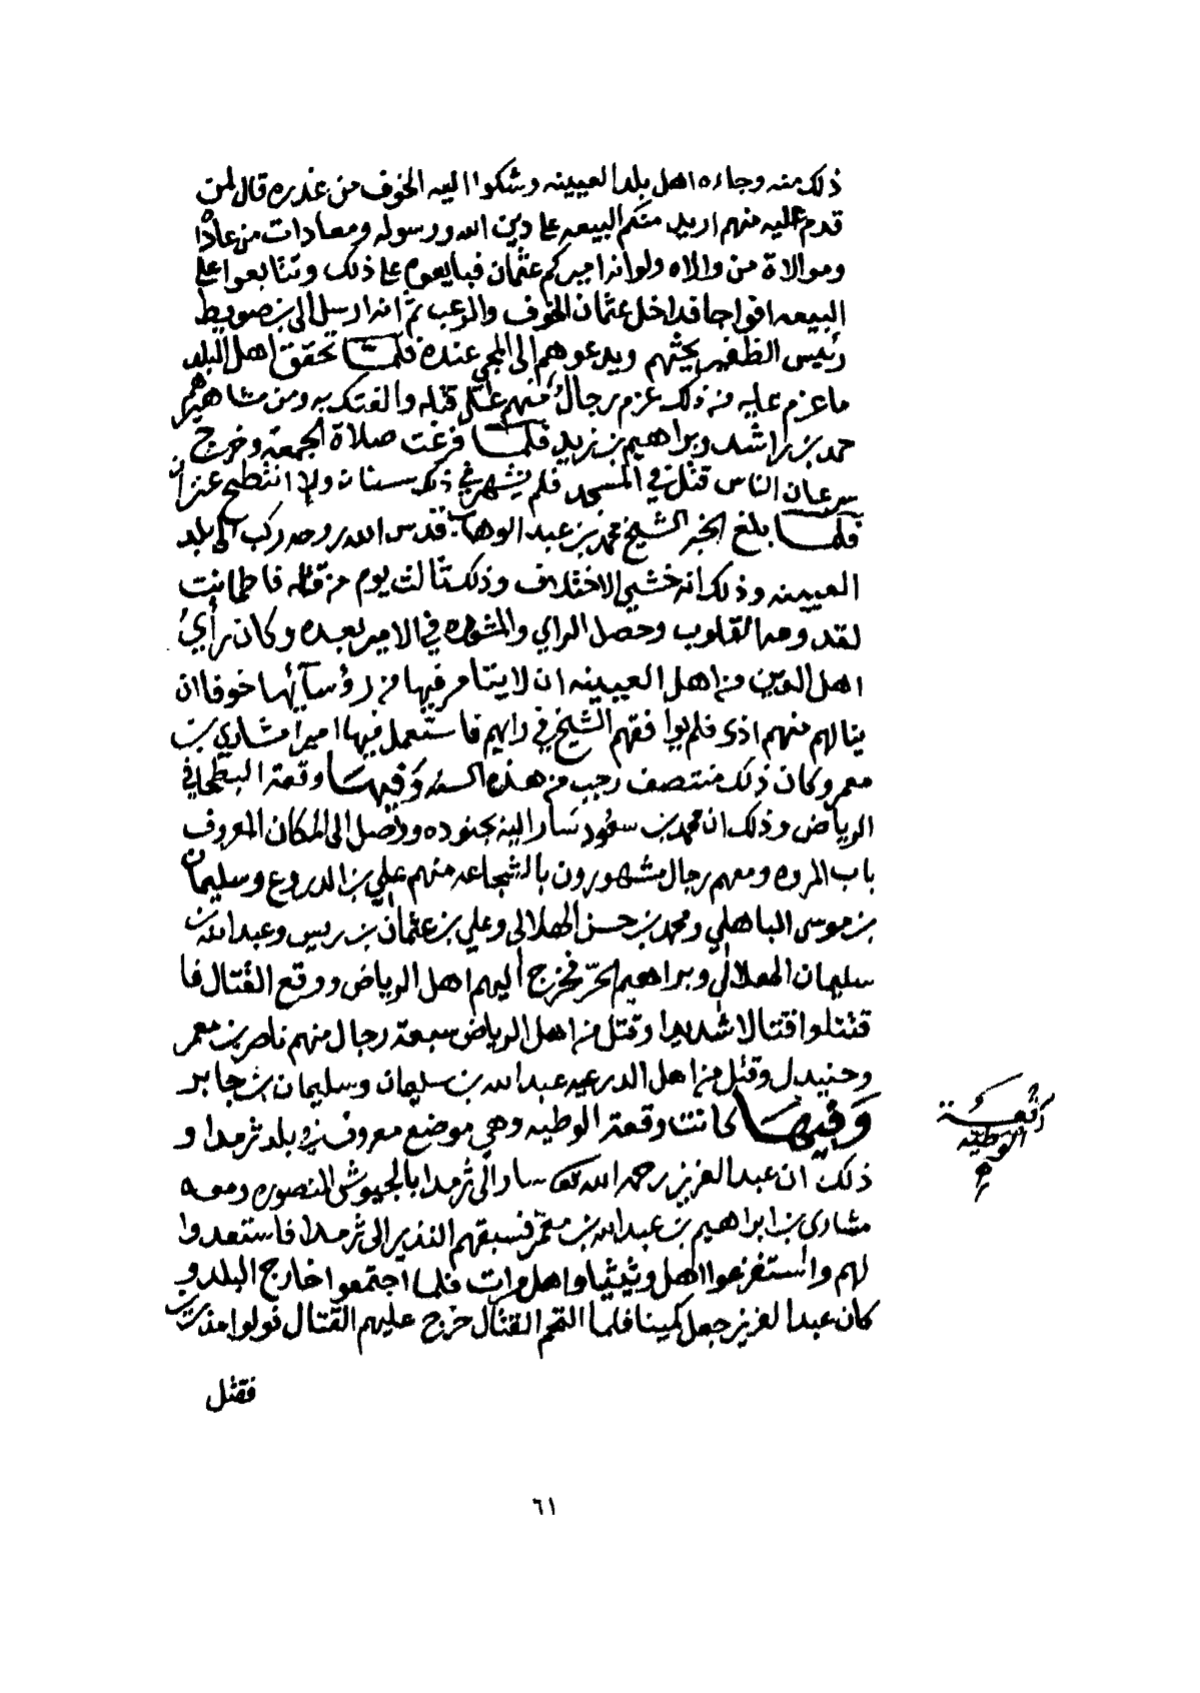 ذلك منه وجاءه اهل بلد العيينه وشكوا اليه الخوف من غدره قال لمن
قدم عليه منهم اريد منكم البيعه على دين الله ورسوله ومعادات من عاداه
وموالاة من والاه ولو انه اميركم عثمان فبايعوه على ذلك وتتابعوا على
البيعه افواجا فداخل عثمان الخوف والرعب ثم انه ارسل الى بن صويط
رئيس الظفير يحثهم ويدعوهم الى المجي عنده فلما تحقق اهل البلد
ما عزم عليه من ذلك عزم رجال منهم على قتله والفتك به ومن مشاهيرهم
حمد بن راشد وبراهيم بن زيد فلما فرغت صلاة الجمعة وخرج
سرعان الناس قتل في المسجد فلم يشهر في ذلك سنان ولا انتطح عنزان
فلما بلغ الخبر الشيخ محمد بن عبد الوهاب قدس الله روحه ركب الى بلد
العيينه وذلك انه خشي الاختلاف وذلك ثالث يوم من قتله فاطمانت
لقدومه القلوب وحصل الراي والمشوره في الامير بعده وكان رأي
اهل الدين من اهل العيينه ان لا يتامر فيها من رؤسآئها خوفا ان
ينالهم منهم اذى فلم يوافقهم الشيخ في رايهم فاستعمل فيها اميرا مشاري بن
معمر وكان ذلك منتصف رجب من هذه السنه وفيها وقعة البطحا في
الرياض وذلك ان محمد بن سعود سار اليه بجنوده ووصل الى المكان المعروف
باب المروه ومعهم رجال مشهورون بالشجاعه منهم علي بن الدروع وسليمان
بن موسى الباهلي ومحمد بن حسن الهلالى وعلي بن عثمان بن ريس وعبد الله بن
سليمان الهلالي وبراهيم الحر فخرج اليهم اهل الرياض ووقع القتال فا
قتتلوا قتالا شديدا وقتل من اهل الرياض سبعة رجال منهم ناصر بن معمر
وجنيدل وقتل من اهل الدرعيه عبد الله بن سليمان وسليمان بن جابر
وفيها كانت وقعة الوطيه وهي موضع معروف في بلد ثرمدا و
وقعة
الوطيه
ذلك ان عبد العزيز رحمه الله سار الى ثرمدا بالجيوش المنصوره ومعه
مشارى بن ابراهيم بن عبد الله بن معمر فسبقهم النذير الى ثرمدا فاستعدوا
لهم واستفزعوا اهل وثيثيا واهل مرات فلما اجتمعوا خارج البلد و
كان عبد العزيز جعل كمينا فلما التحم القتال خرج عليهم القتال فولوا مدبرين
فقتل
٦١